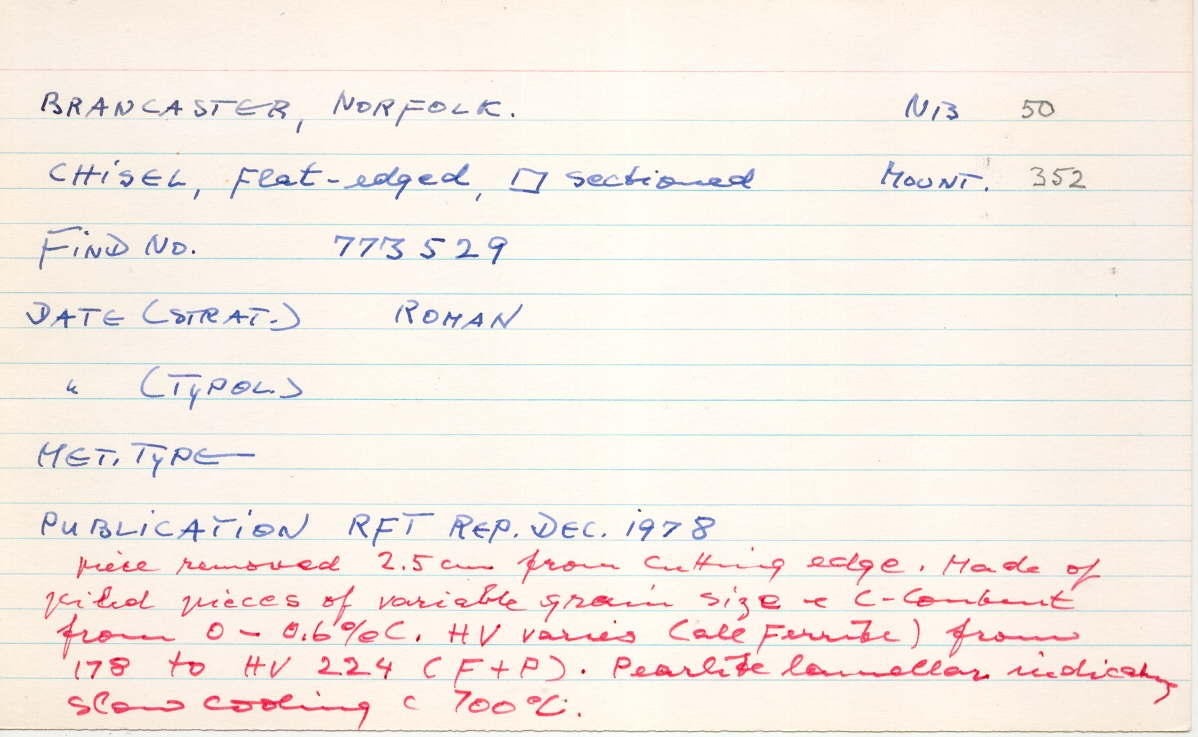 BRANCASTER, NORFOLK. N13 50
CHISEL, Flat-edged, □ sectioned MOUNT. 352
FIND NO. 773529
DATE (STRAT.) ROMAN
" (TYPOL.)
MET. TYPE
PUBLICATION RFT REP. DEC. 1978
piece removed 2.5 cm from cutting edge. Made of
piled pieces of variable grain size & C-Content
from 0 - 0.6%C. HV varies (all Ferrite) from
178 to HV 224 (F+P). Pearlite lamellar indicating
slow cooling c 700°C.